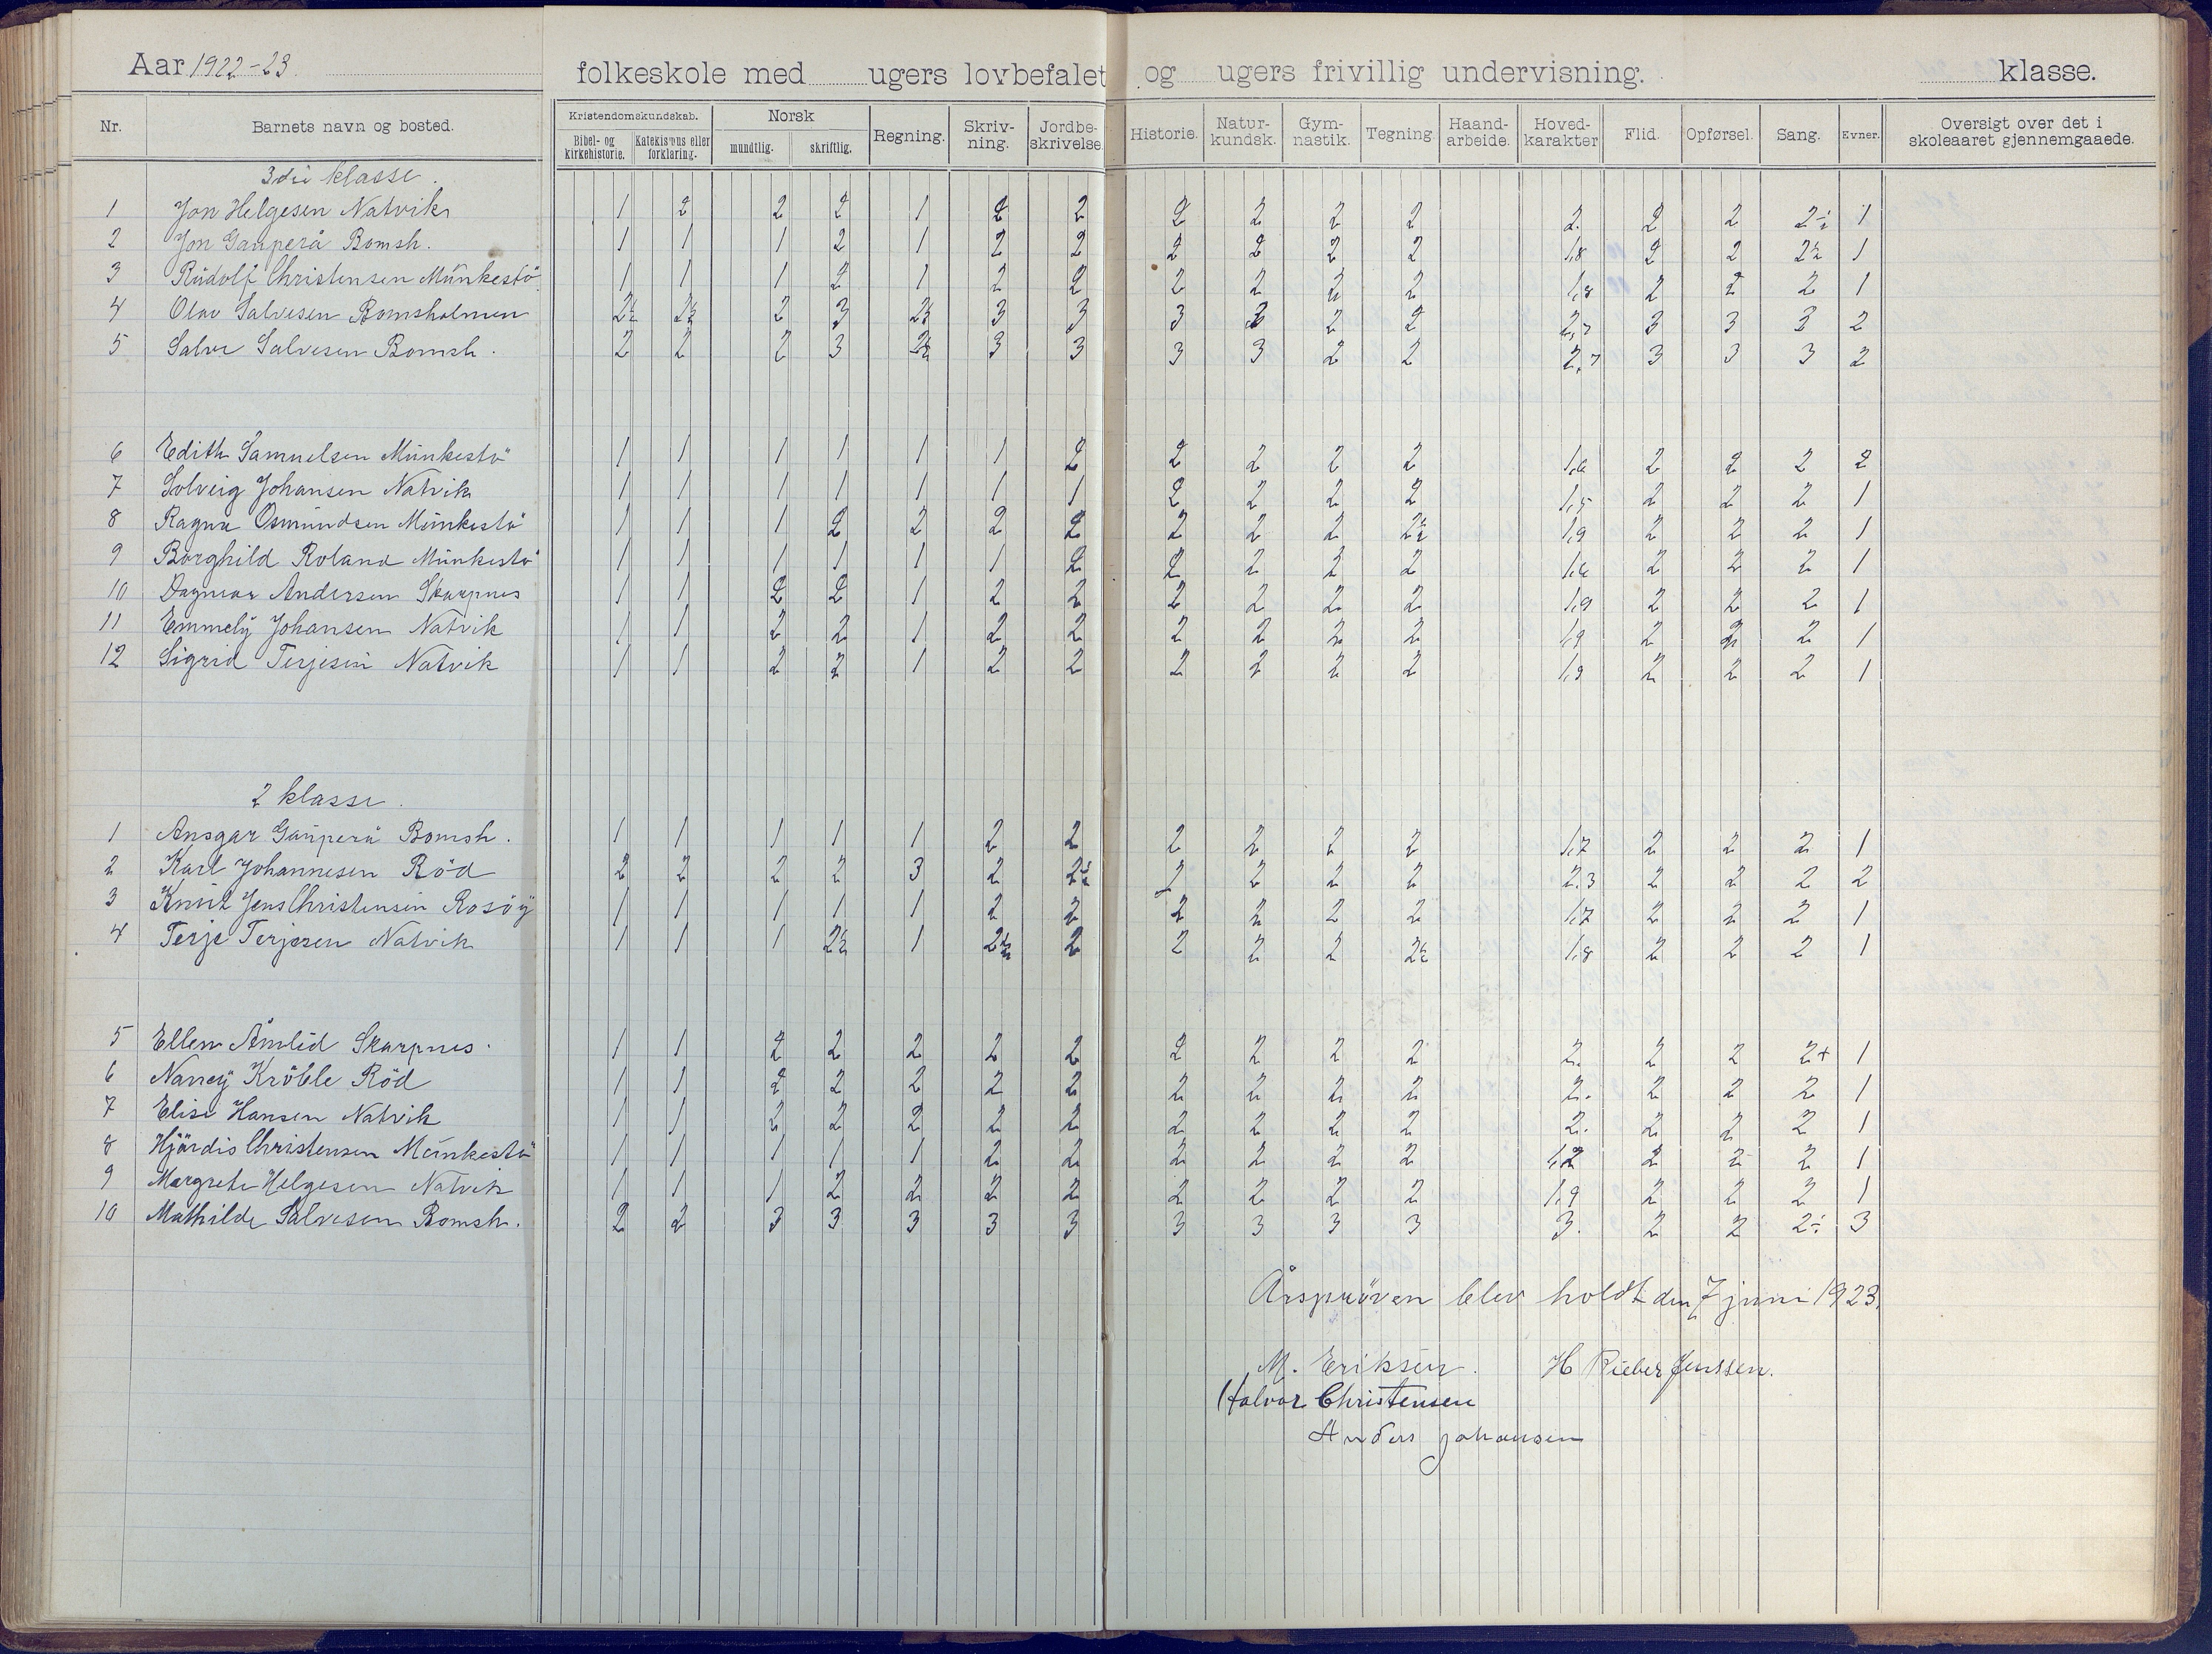 Aar 1922-23.
folkeskole med ugers lovbefalet og ugers frivillig undervisning. klasse.
Nr. Barnets navn og bosted. Kristendomskundskab. Bibel- og kirkehistorie. Katekismus eller forklaring. Norsk mundtlig. skriftlig. Regning. Skriv-ning. Jordbe-skrivelse. Historie. Natur-kundsk. Gym-nastik. Tegning Haand-arbeide. Hoved-karakter Flid. Opførsel. Sang. Evner. Oversigt over det i skoleaaret gjennemgaaede.
3die klasse.
1 Jon Helgesen Natvik 1 2 2 2 1 2 2 2 2 2 2 2. 2 2 2÷ 1
2 Jon Gauperå Bomsh. 1 1 1 2 1 2 2 2 2 2 2 1,8 2 2 2½ 1
3 Rudolf Christensen Munkestö 1 1 1 2 1 2 2 2 2 2 2 1,8 2 2 2 1
4 Olav Salvesen Bomsholmen 2½ 2½ 2 3 2½ 3 3 3 3 2 2 2,7 3 3 3 2
5 Salve Salvesen Bomsh. 2 2 2 3 2½ 3 3 3 3 2 2 2,7 3 3 3 2
6 Edith Samuelsen Munkestö 1 1 1 1 1 1 2 2 2 2 2 1,6 2 2 2 2
7 Solveig Johansen Natvik 1 1 1 1 1 1 1 2 2 2 2 1,5 2 2 2 1
8 Ragna Osmundsen Munkestö 1 1 1 2 2 2 2 2 2 2 2½ 1,9 2 2 2 1
9 Borghild Roland Munkestö 1 1 1 1 1 1 2 2 2 2 2 1,6 2 2 2 1
10 Dagmar Andersen Skarpnes 1 1 2 2 1 2 2 2 2 2 2 1,9 2 2 2 1
11 Emmely Johansen Natvik 1 1 2 2 1 2 2 2 2 2 2 1,9 2 2 2 1
12 Sigrid Terjesen Natvik 1 1 2 2 1 2 2 2 2 2 2 1,9 2 2 2 1
2 klasse.
1 Ansgar Gauperå Bomsh. 1 1 1 1 1 2 2 2 2 2 2 1,7 2 2 2 1
2 Karl Johannesen Röd 2 2 2 2 3 2 2½ 2 2 2 2 2,3 2 2 2 2
3 Knut Jens Christensen Rosöy 1 1 1 1 1 2 2 2 2 2 2 1,7 2 2 2 1
4 Terje Terjesen Natvik 1 1 1 2½ 1 2½ 2 2 2 2 2½ 1,8 2 2 2 1
5 Ellen Åmlid Skarpnes. 1 1 2 2 2 2 2 2 2 2 2 2. 2 2 2+ 1
6 Nancy Kröble Röd 1 1 2 2 2 2 2 2 2 2 2 2. 2 2 2 1
7 Elise Hansen Natvik 1 1 2 2 2 2 2 2 2 2 2 2. 2 2 2 1
8 Hjördis Christensen Munkestö 1 1 1 1 1 2 2 2 2 2 2 1,2 2 2 2 1
9 Margrethe Helgesen Natvik 1 1 1 2 2 2 2 2 2 2 2 1,9 2 2 2 1
10 Mathilde Salvesen Bomsh. 2 2 3 3 3 3 3 3 3 3 3 3. 2 2 2÷ 3
Årspröven blev holdt den 7 juni 1923.
M. Eriksen. H Rieber Jenssen.
Halvor Christensen
Anders Johansen